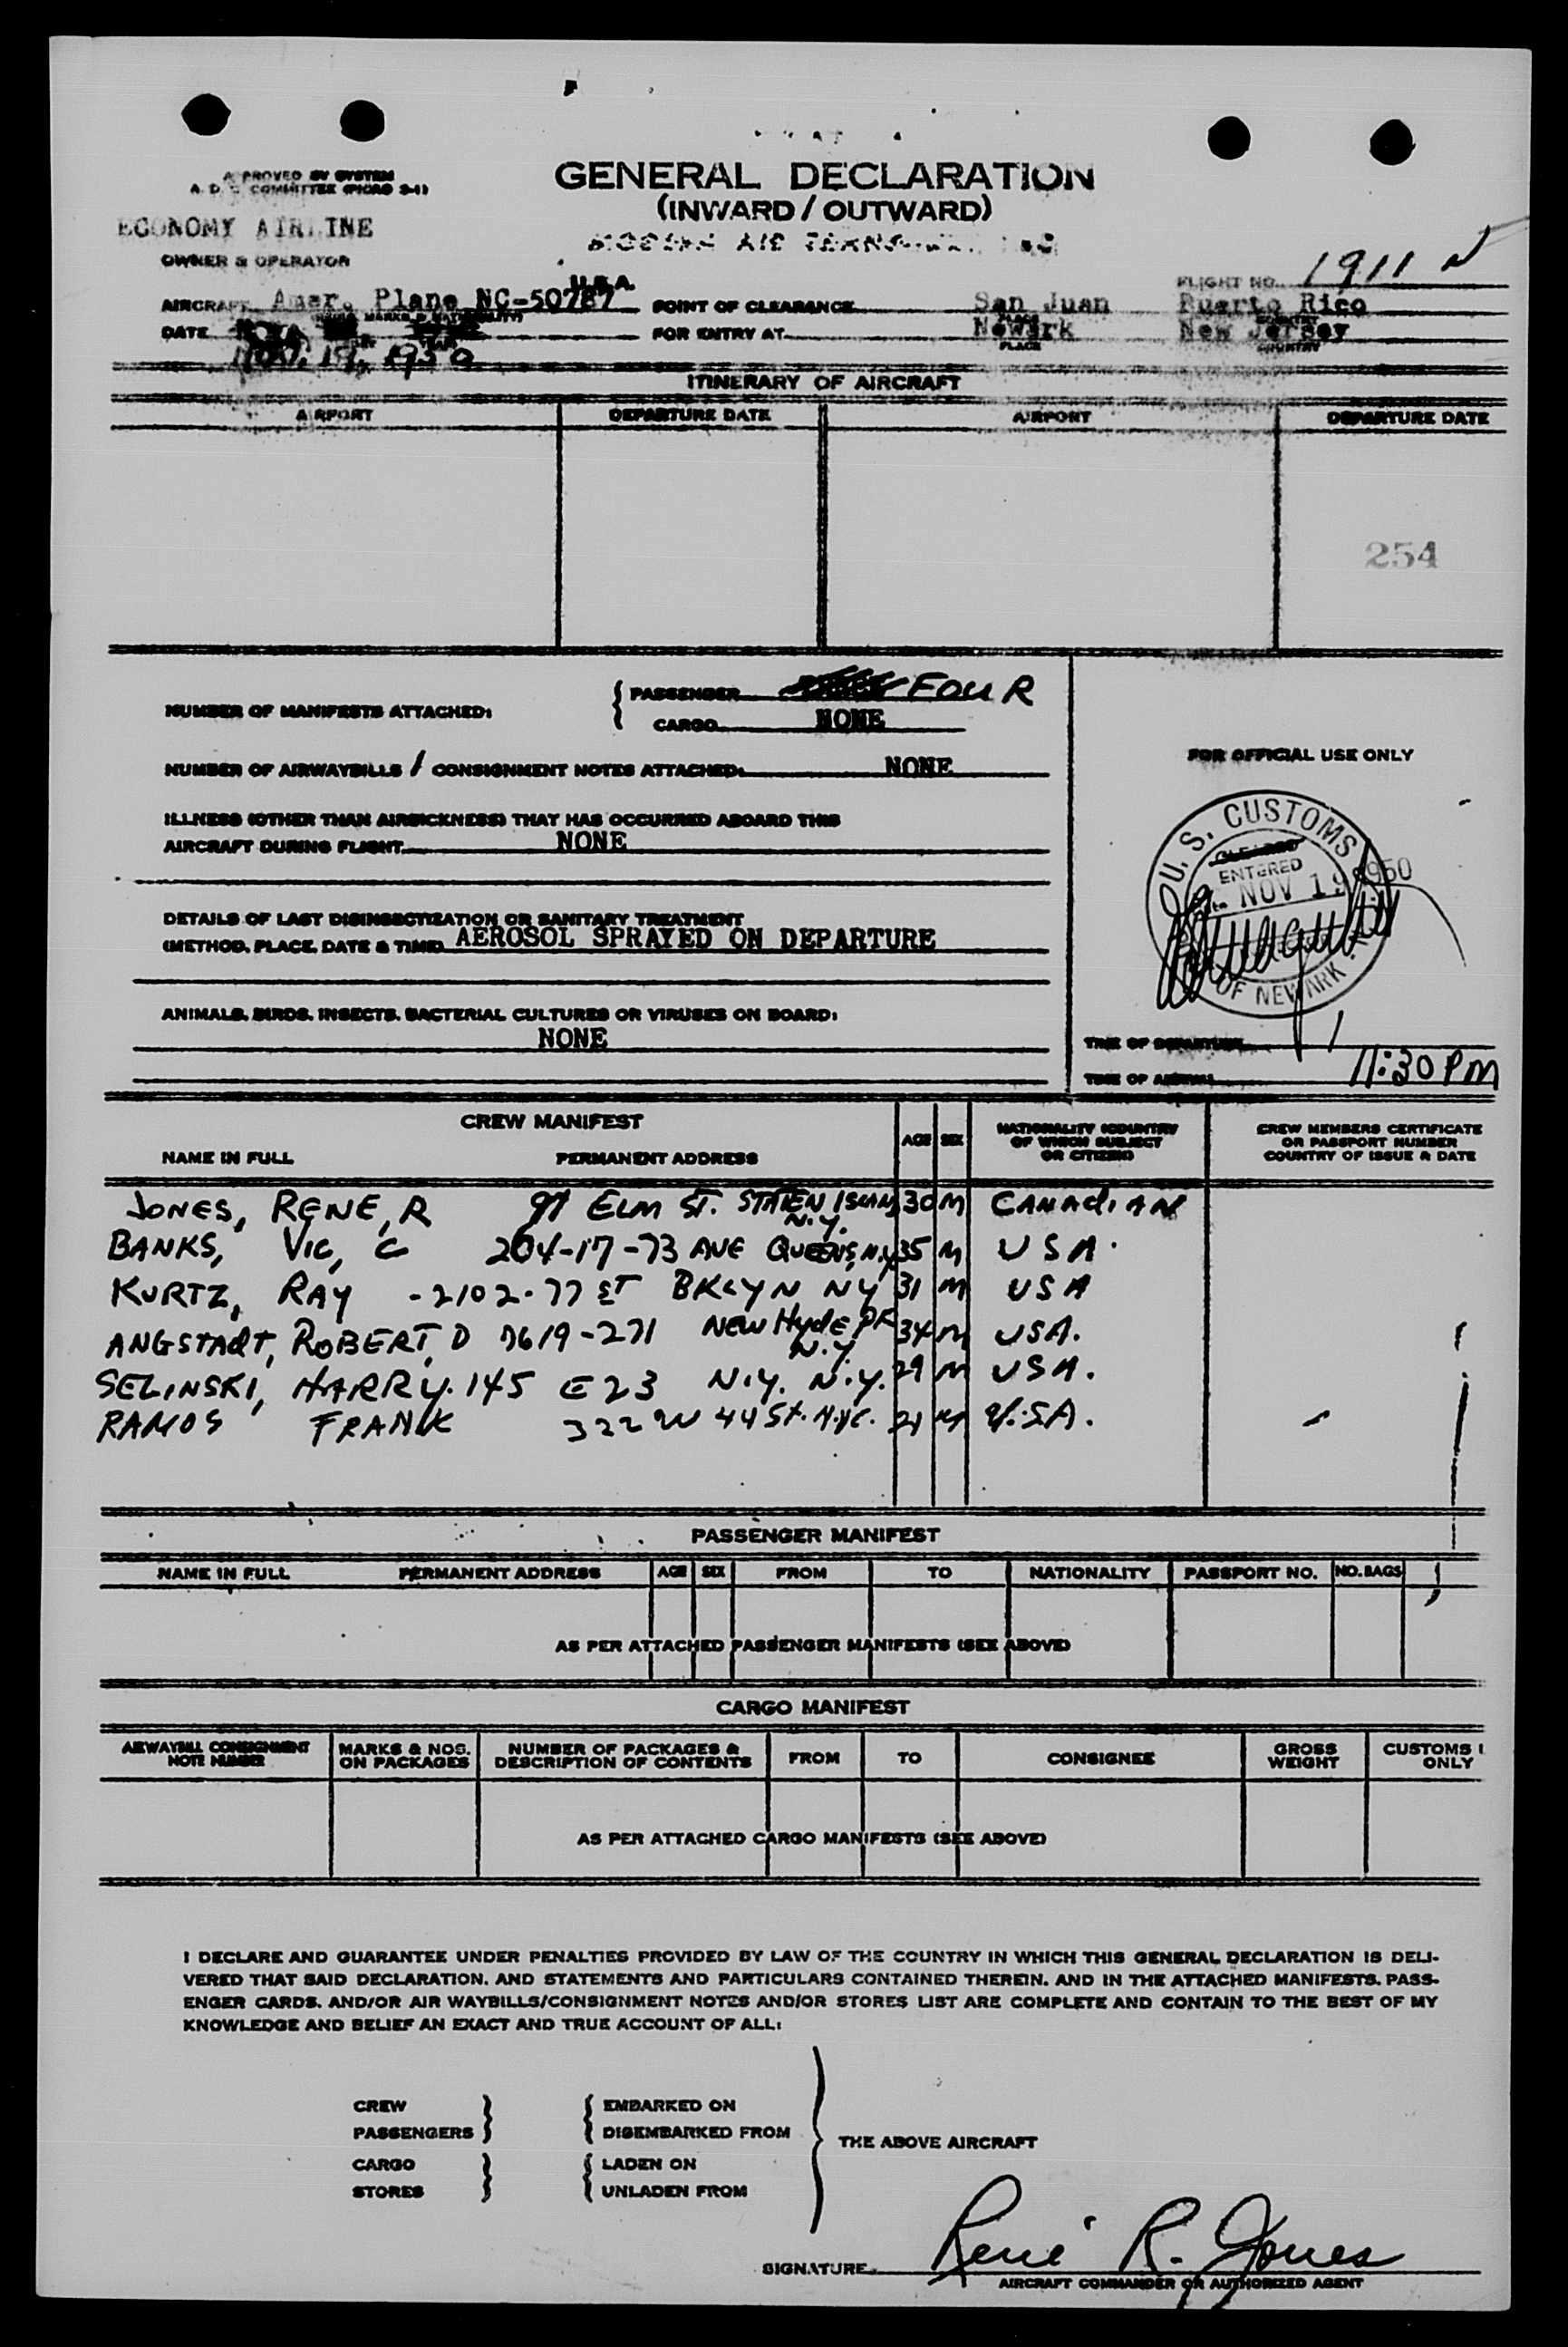 APPROVED BY SYSTEM
COMMITTEE
GENERAL DECLARATION
(INWARD / OUTWARD)
ECONOMY AIRLINE
OWNER & OPERATOR
FLIGHT NO. 1911 N
U.S.A.
AIRCRAFT Amer. Plane NC-50787 POINT OF CLEARANCE San Juan Puerto Rico
DATE FOR ENTRY AT Newark New Jersey
PLACE COUNTRY
Nov. 19, 1950
ITINERARY OF AIRCRAFT
AIRPORT DEPARTURE DATE AIRPORT DEPARTURE DATE
254
NUMBER OF MANIFESTS ATTACHED: PASSENGER FOUR
CARGO NONE
NUMBER OF AIRWAYBILLS / CONSIGNMENT NOTES ATTACHED: NONE
FOR OFFICIAL USE ONLY
ILLNESS (OTHER THAN AIRSICKNESS) THAT HAS OCCURRED ABOARD THIS
AIRCRAFT DURING FLIGHT NONE
U. S. CUSTOMS
CLEARED
ENTERED
NOV 19 1950
OF NEWARK
DETAILS OF LAST DISINSECTIZATION OR SANITARY TREATMENT
(METHOD, PLACE, DATE & TIME) AEROSOL SPRAYED ON DEPARTURE
ANIMALS, BIRDS, INSECTS, BACTERIAL CULTURES OR VIRUSES ON BOARD:
NONE
TIME OF DEPARTURE
TIME OF ARRIVAL 11:30 PM
CREW MANIFEST
NAME IN FULL PERMANENT ADDRESS AGE SEX NATIONALITY (COUNTRY OF WHICH SUBJECT OR CITIZEN) CREW MEMBERS CERTIFICATE OR PASSPORT NUMBER COUNTRY OF ISSUE & DATE
JONES, RENE, R 91 ELM ST. STATEN ISLAND N.Y. 30 M CANADIAN
BANKS, VIC, C 204-17-73 AVE QUEENS, N.Y. 35 M USA.
KURTZ, RAY - 2102-77 ST BKLYN NY 31 M USA
ANGSTADT, ROBERT, D 7619-271 NEW Hyde PK N.Y. 34 M USA.
SELINSKI, HARRY. 145 E 23 N.Y. N.Y. 29 M USA.
RAMOS FRANK 322 W 44 St. N.Y.C. 21 M U.S.A.
PASSENGER MANIFEST
NAME IN FULL PERMANENT ADDRESS AGE SEX FROM TO NATIONALITY PASSPORT NO. NO. BAGS
AS PER ATTACHED PASSENGER MANIFESTS (SEE ABOVE)
CARGO MANIFEST
AIRWAYBILL CONSIGNMENT NOTE NUMBER MARKS & NOS. ON PACKAGES NUMBER OF PACKAGES & DESCRIPTION OF CONTENTS FROM TO CONSIGNEE GROSS WEIGHT CUSTOMS ONLY
AS PER ATTACHED CARGO MANIFESTS (SEE ABOVE)
I DECLARE AND GUARANTEE UNDER PENALTIES PROVIDED BY LAW OF THE COUNTRY IN WHICH THIS GENERAL DECLARATION IS DELI-
VERED THAT SAID DECLARATION, AND STATEMENTS AND PARTICULARS CONTAINED THEREIN, AND IN THE ATTACHED MANIFESTS, PASS-
ENGER CARDS, AND/OR AIR WAYBILLS/CONSIGNMENT NOTES AND/OR STORES LIST ARE COMPLETE AND CONTAIN TO THE BEST OF MY
KNOWLEDGE AND BELIEF AN EXACT AND TRUE ACCOUNT OF ALL:
CREW EMBARKED ON
PASSENGERS DISEMBARKED FROM
THE ABOVE AIRCRAFT
CARGO LADEN ON
STORES UNLADEN FROM
SIGNATURE René R. Jones
AIRCRAFT COMMANDER OR AUTHORIZED AGENT